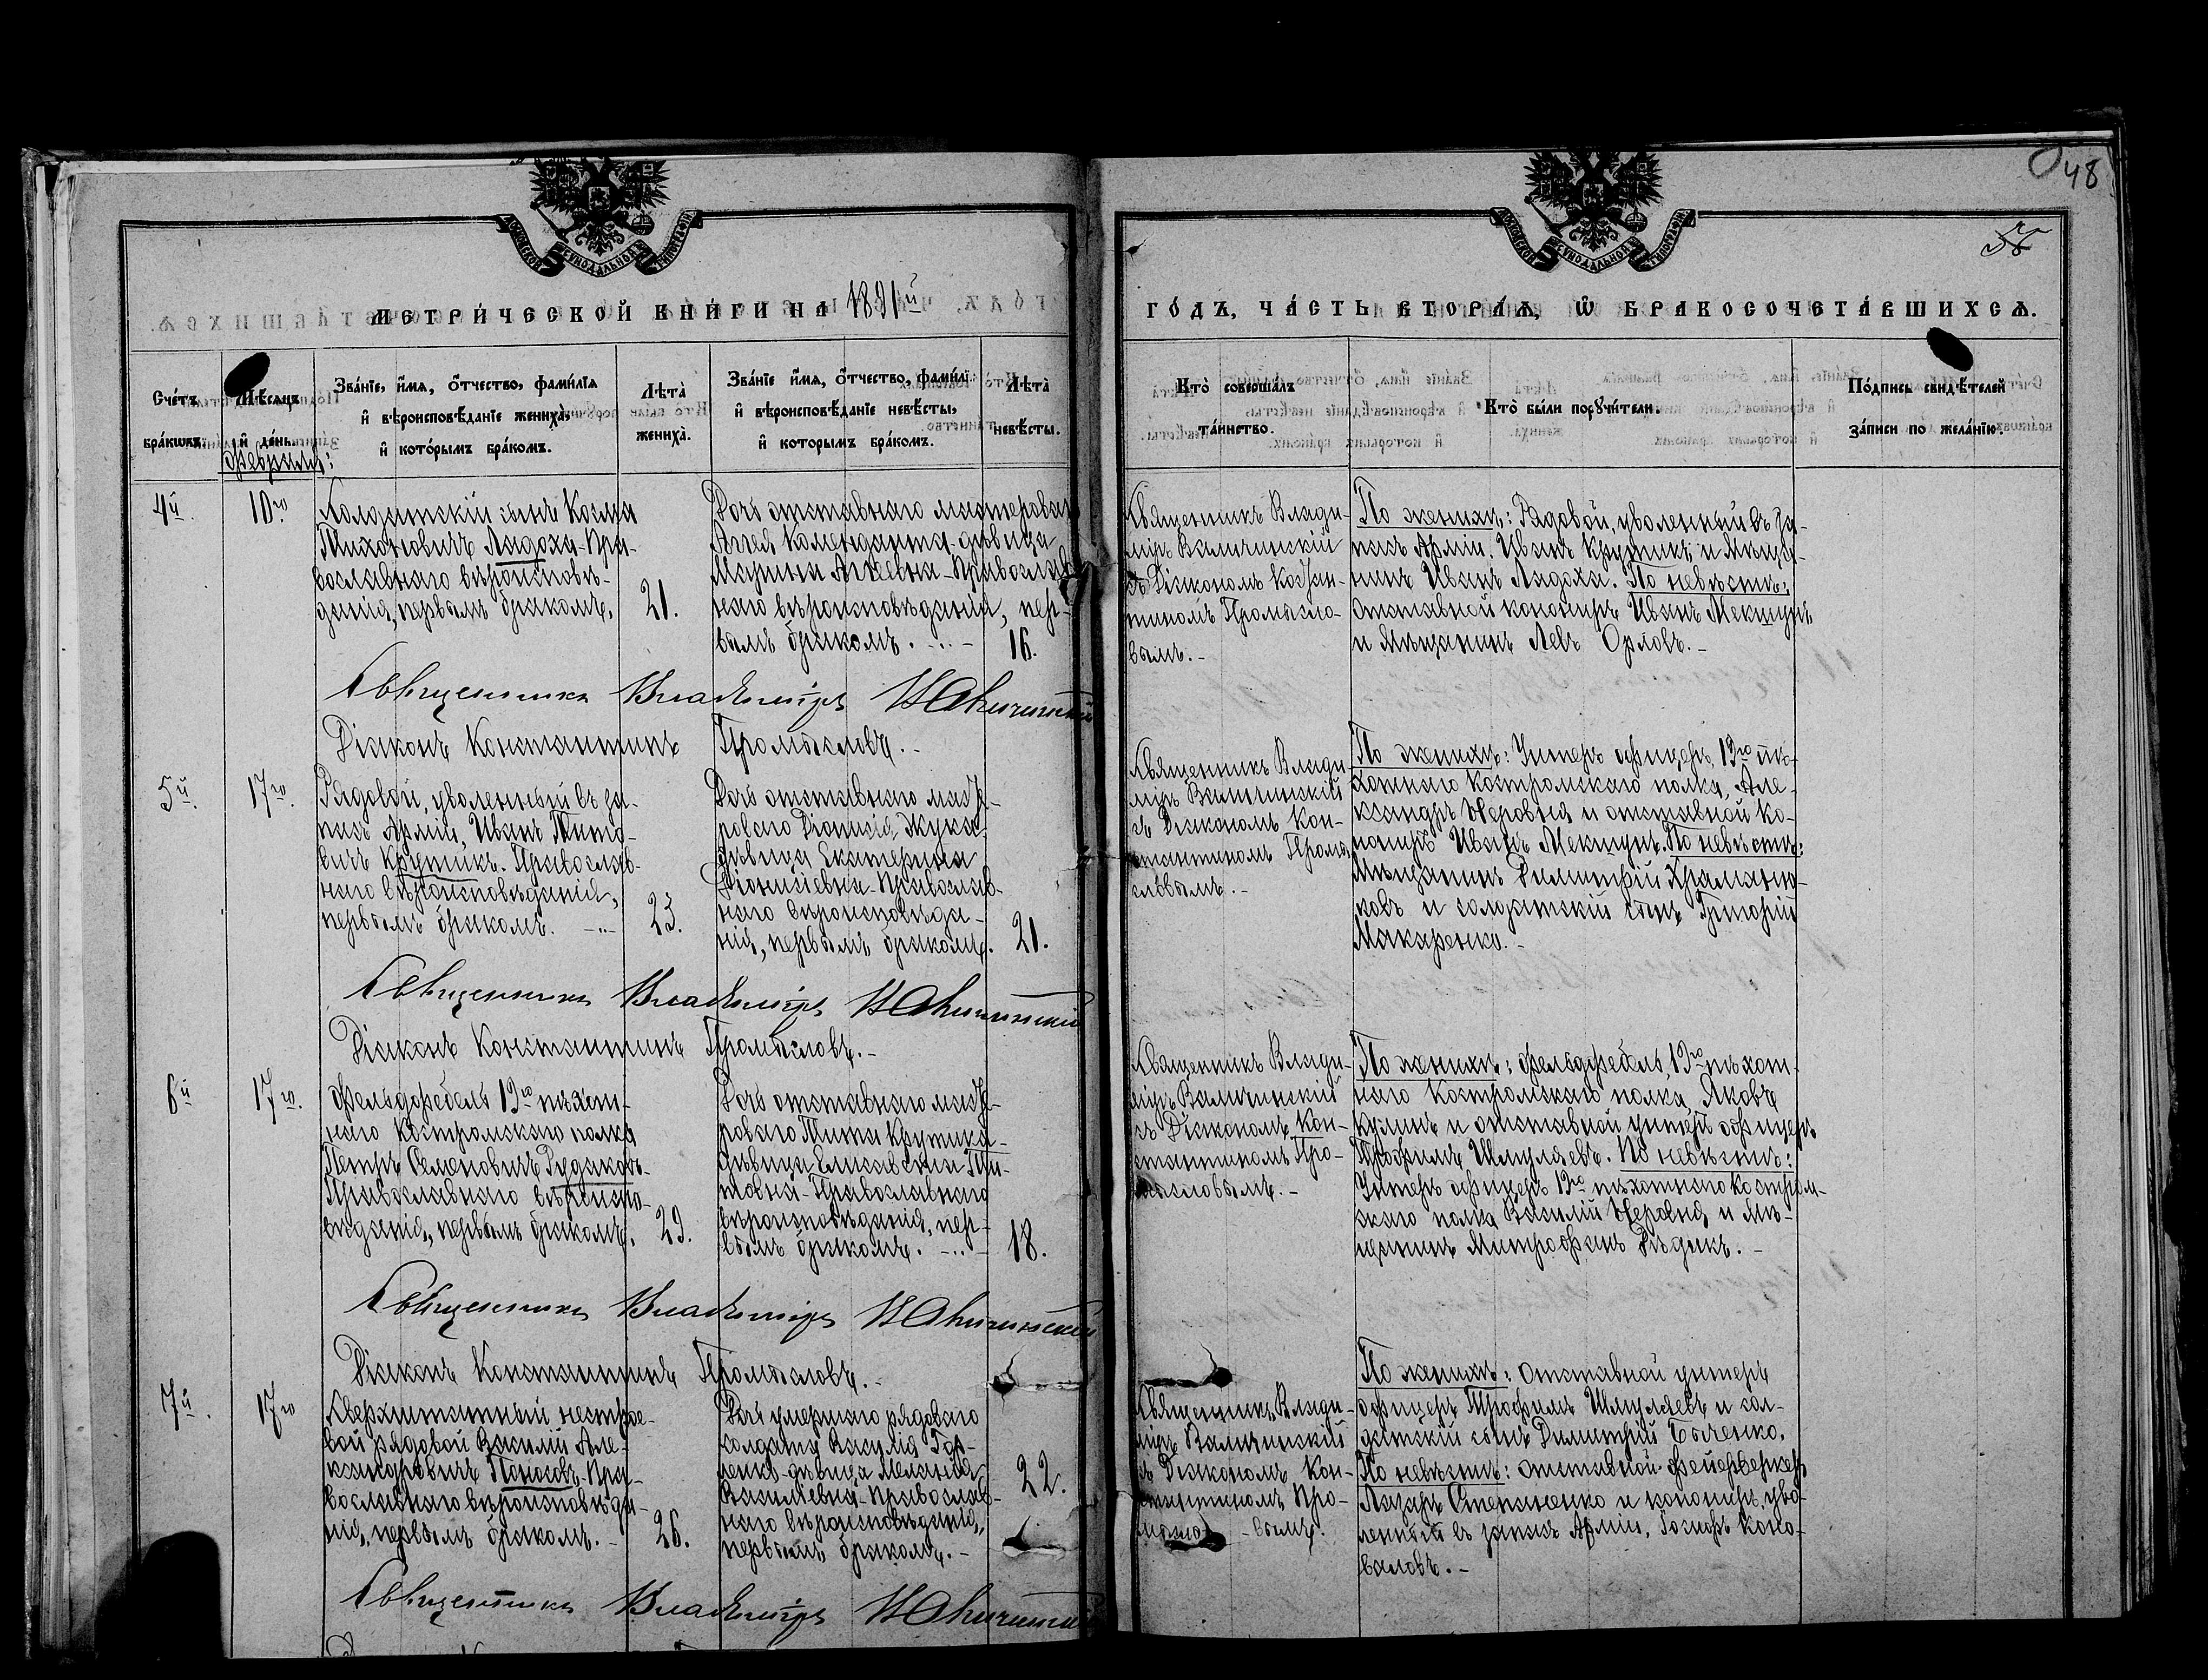 48
56
МОСКОВСКОЙ СѴНОДАЛЬНОЙ ТИПОГРАФІИ
МОСКОВСКОЙ СѴНОДАЛЬНОЙ ТИПОГРАФІИ
МЕТРИ́ЧЕСКОЙ КНИ́ГИ НА 1891й
ГО́ДЪ, ЧА́СТЬ ВТОРА́Ѧ, Ѡ҆ БРАКОСОЧЕТА́ВШИХСѦ.
Сче́тъ
бра́кѡвъ.
Мѣ́сѧцъ
и҆ де́нь.
Февраль:
Зва́нїе, и҆́мѧ, ѻ҆́тчество, фами́лїѧ
и҆ вѣроисповѣ́данїе жениха̀,
и҆ кото́рымъ бра́комъ.
Лѣ́та
жениха̀.
Зва́нїе и҆́мѧ, ѻ҆́тчество, фами́лїѧ
и҆ вѣроисповѣ́данїе невѣ́сты,
и҆ которымъ бра́комъ.
Лѣ́та
невѣ́сты.
Кто̀ соверша́лъ
та́инство.
Кто̀ бы́ли порꙋчи́тели.
По́дпись свидѣ́телей
за́писи по жела́нїю.
4й.
10го.
Солдатскій сынъ Козма
Тихоновичъ Ладоха-Пра-
вославнаго вѣроисповѣ-
данія, первымъ бракомъ.
21.
Дочь отставнаго мастероваго
Аггея Коменданта-дѣвица
Марина Аггеевна-Православ-
наго вѣроисповѣданія, пер-
вымъ бракомъ.
16.
Священникъ Влади-
міръ Валичинскій
съ Діакономъ Констан-
тиномъ Промысло-
вымъ.-
По женихѣ: Рядовой, уволенный въ за-
пасъ Арміи, Иванъ Крутикъ и Мѣща-
нинъ Иванъ Ладоха. По невѣстѣ:
отставной канониръ Иванъ Мекшунъ
и Мѣщанинъ Левъ Орловъ.-
Священникъ Владиміръ Валичинскій
Діаконъ Константинъ Промысловъ.-
5й.
17го.
Рядовой, уволенный въ за-
пасъ Арміи, Иванъ Тито-
вичъ Крутикъ-Православ-
наго вѣроисповѣданія,
первымъ бракомъ.
23.
Дочь отставнаго масте-
роваго Діонисія Жука-
дѣвица Екатерина
Діонисіевна-Православ-
наго вѣроисповѣда-
нія, первымъ бракомъ.
21.
Священникъ Влади-
міръ Валичинскій
съ Діакономъ Кон-
стантиномъ Промы-
словымъ.-
По женихѣ: Унтеръ офицеръ 19го пѣ-
хотнаго Костромскаго полка, Але-
ксандръ Неровня и отставной ка-
нониръ Иванъ Мекшунъ. По невѣстѣ:
Мѣщанинъ Димитрій Храмлю-
ковъ и солдатскій сынъ Григорій
Макаренко.-
Священникъ Владиміръ Валичинскій
Діаконъ Константинъ Промысловъ.-
6й
17го.
Фельдфебель 19го пѣхот-
наго Костромскаго полка
Петръ Семеновичъ Рудаковъ-
Православнаго вѣроиспо-
вѣданія, первымъ бракомъ.
29.
Дочь отставнаго масте-
роваго Тита Крутика-
дѣвица Елисавета Ти-
товна-Православнаго
вѣроисповѣданія, пер-
вымъ бракомъ.
18.
Священникъ Влади-
міръ Валичинскій
съ Діакономъ Кон-
стантиномъ Про-
мысловымъ.-
По женихѣ: Фельдфебель 19го пѣхот-
наго Костромскаго полка, Яковъ
Кулинъ и отставной унтеръ офицеръ
Трофимъ Шмулаевъ. По невѣстѣ:
Унтеръ офицеръ 19го пѣхотнаго Костром-
скаго полка Василій Неровня и Мѣ-
щанинъ Митрофанъ Рѣдикъ.-
Священникъ Владиміръ Валичинскій
Діаконъ Константинъ Промысловъ.-
7й.
17го
Сверхштатный нестрое-
вой рядовой Василій Але-
ксандровичъ Поносовъ-Пра-
вославнаго вѣроисповѣда-
нія, первымъ бракомъ.-
26.
Дочь умершаго рядоваго
солдата Василія Гор-
ленко-дѣвица Меланія
Васильевна-Православ-
наго вѣроисповѣданія,
первымъ бракомъ.-
22.
Священникъ Влади-
міръ Валичинскій
съ Діакономъ Кон-
стантиномъ Про-
мысло-вымъ.
По женихѣ: отставной унтеръ
офицеръ Трофимъ Шмулаевъ и сол-
датскій сынъ Димитрій Быченко.
По невѣстѣ: отставной фейерверкеръ
Лазарь Степаненко и канониръ, уво-
ленный въ запасъ Арміи, Госиоръ Коно-
валовъ.-
Священникъ Владиміръ Валичинскій